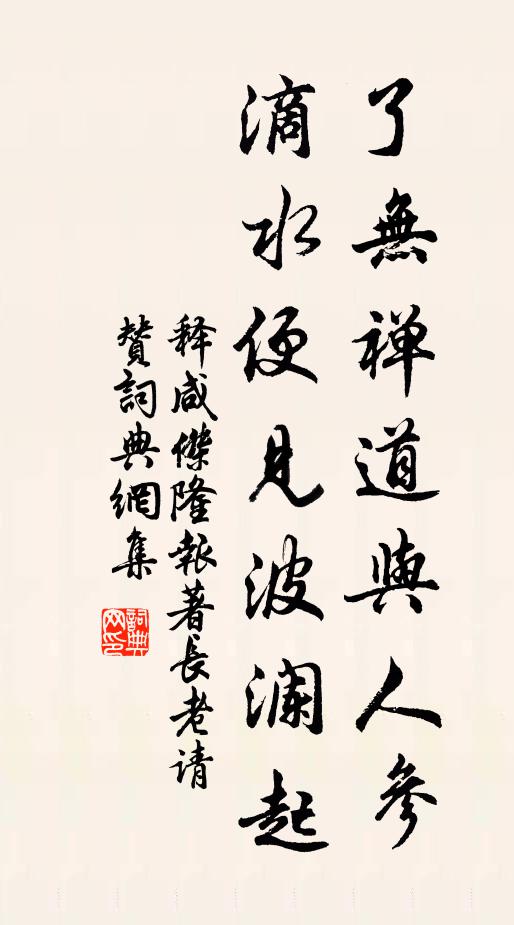 了無禅道與人參
滴水便見波瀾起
释咸傑隆報著長老请
贊詞典網集
詞典网印